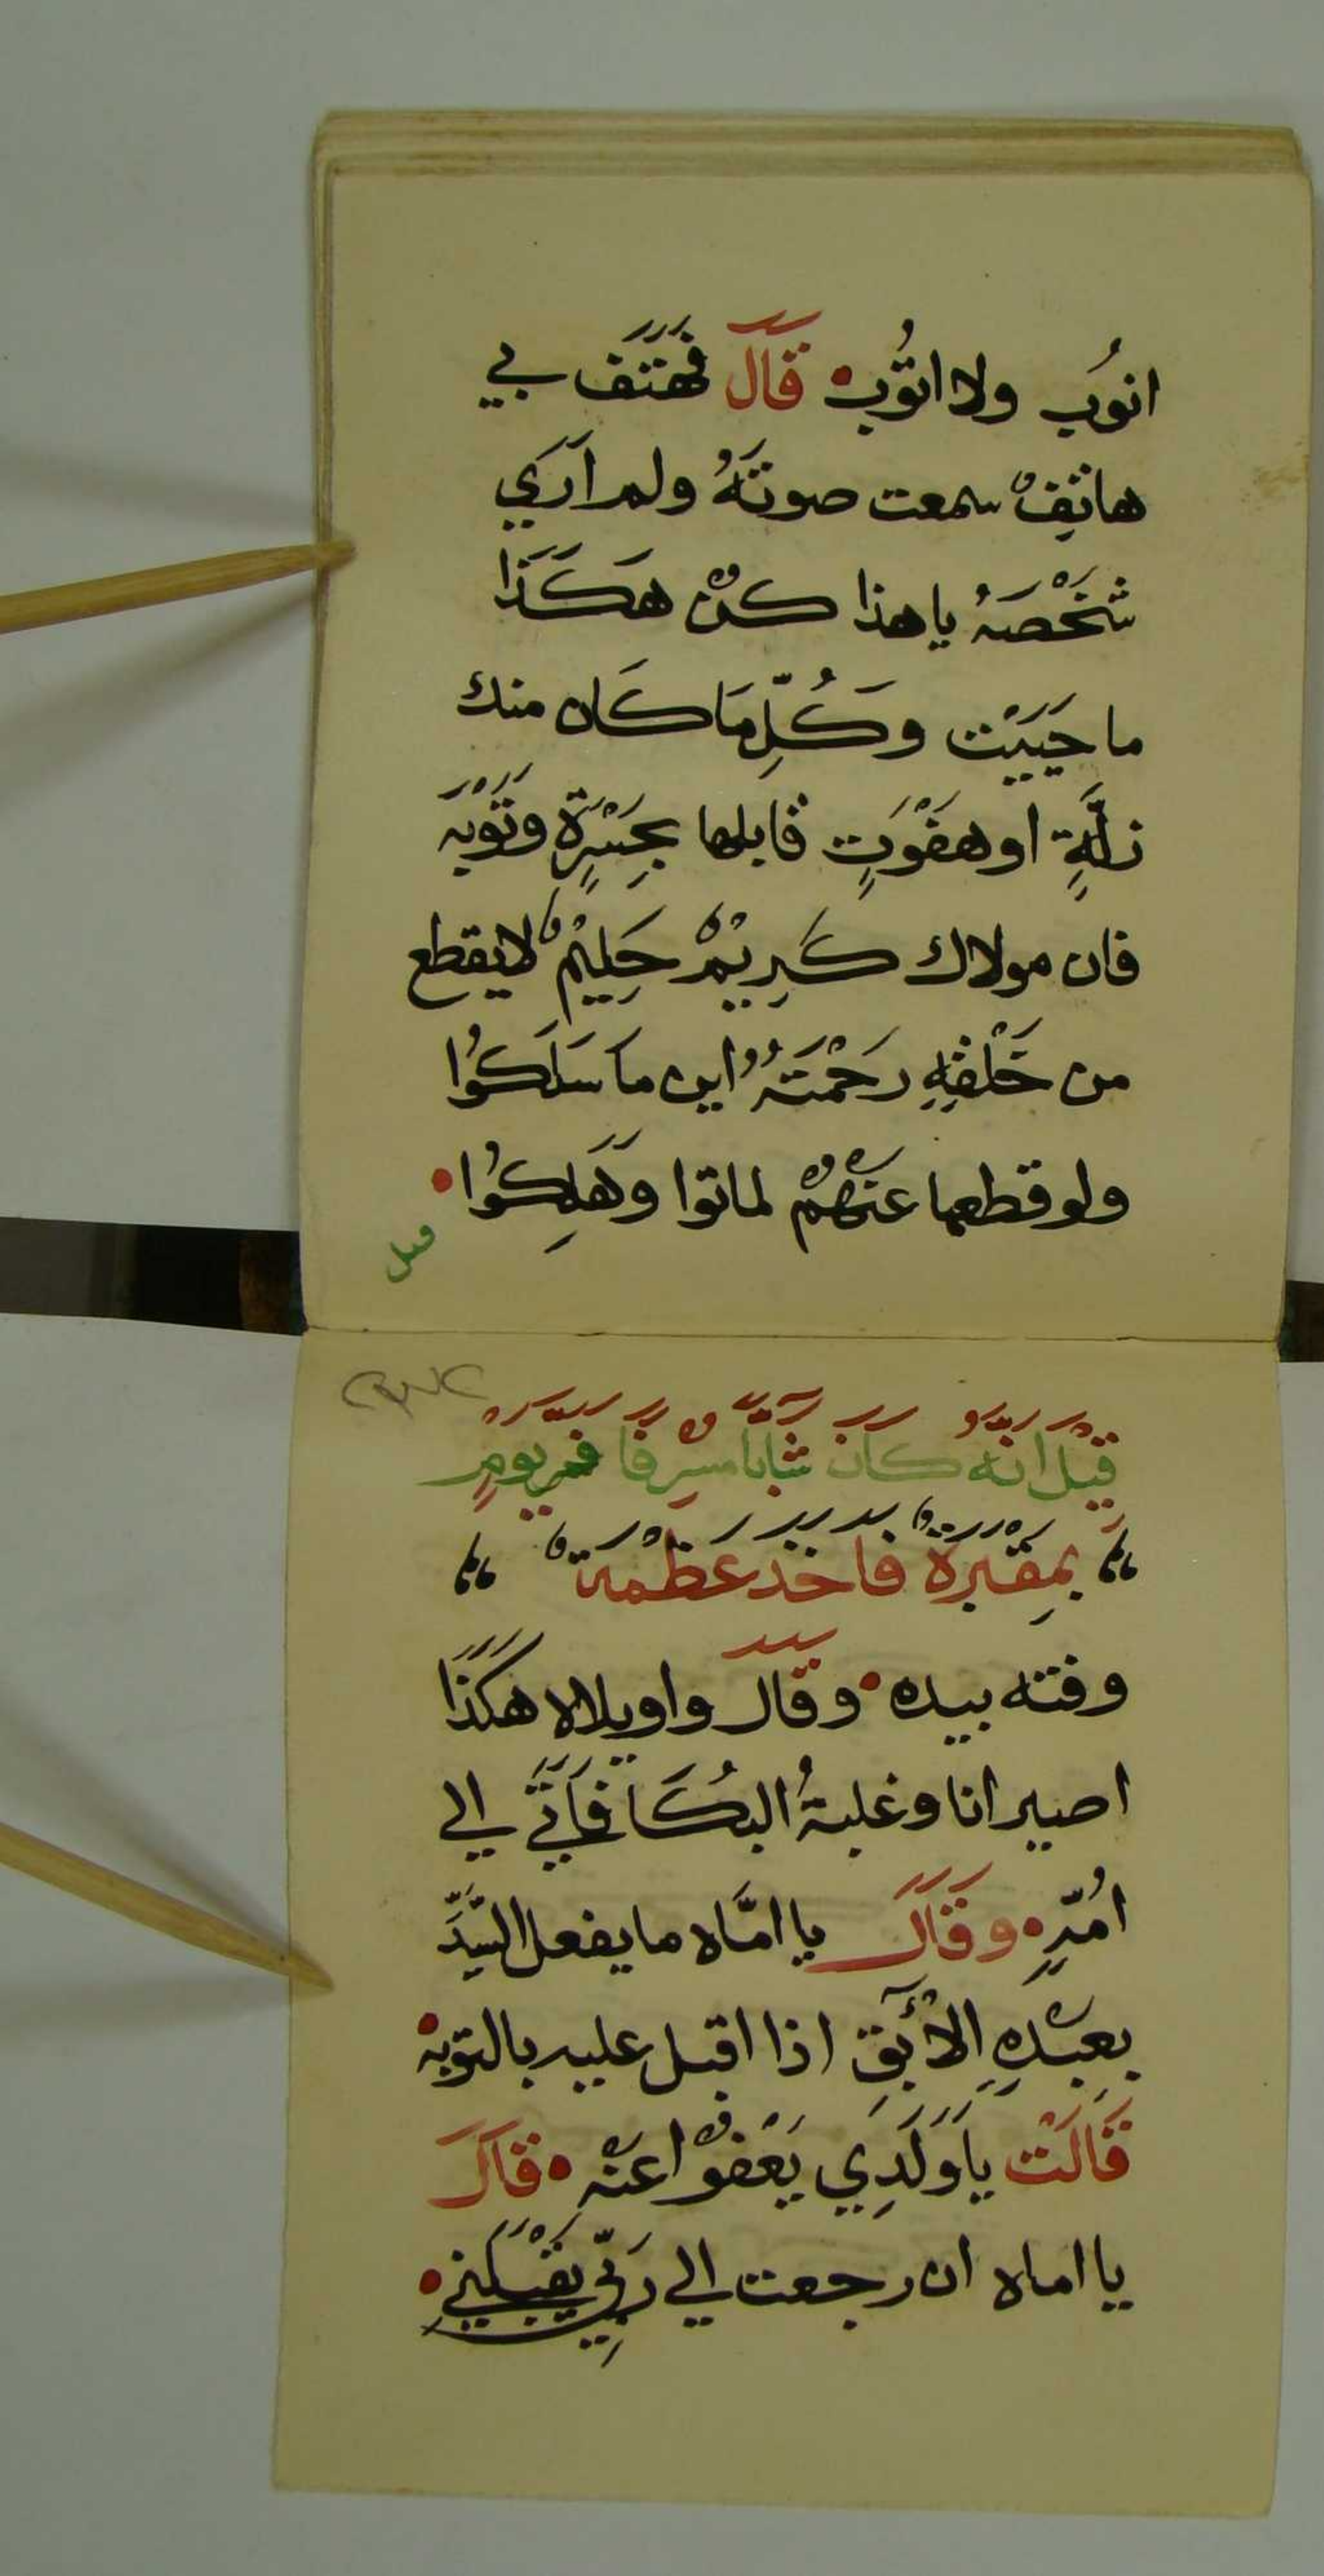 انوُب ولا اتوُب قَالَ فهَتَف بي
هاتِفٌ سمعت صوتَهُ ولم اَرَي
شَخْصَهُ يا هذا كُنْ هَكَذَا
ما حَيَيْت وَكُلِّمَا كَان منك
زلَّةٍ او هَفْوَتٍ قابلها بحِسْرَةٍ وتَوْبَه
فان مولاك كَرِيْمٌ حَلِيْمٌ لا يقطع
من خَلْقِهِ رَحْمَتَهُ اين ما سَلَكُوا
ولو قطعها عَنْهُمْ لماتوا وَهَلِكُوا
قيل
قِيْلَ اَنَّهُ كَانَ شَابًّا مسْرِفًا فمر يومٍ
بمِقْبَرَةٌ فاَخَدَ عَظْمَةٌ
وفته بيده وقَال واويلاه هَكَذَا
اصير انا وغلبهُ البُكَا فَاَتَي الي
اُمّهِ وقَال يا امَّاه ما يفعل السَّيِّدَ
بِعبْدِهِ الاَبِقِ اذا اقبل عليه بالتوبه
قَالَتْ يَا وَلَدِي يَعْفُوْا عنْه قَالَ
يا اماه ان رجعت الي رَبِّي يَقْبَلني